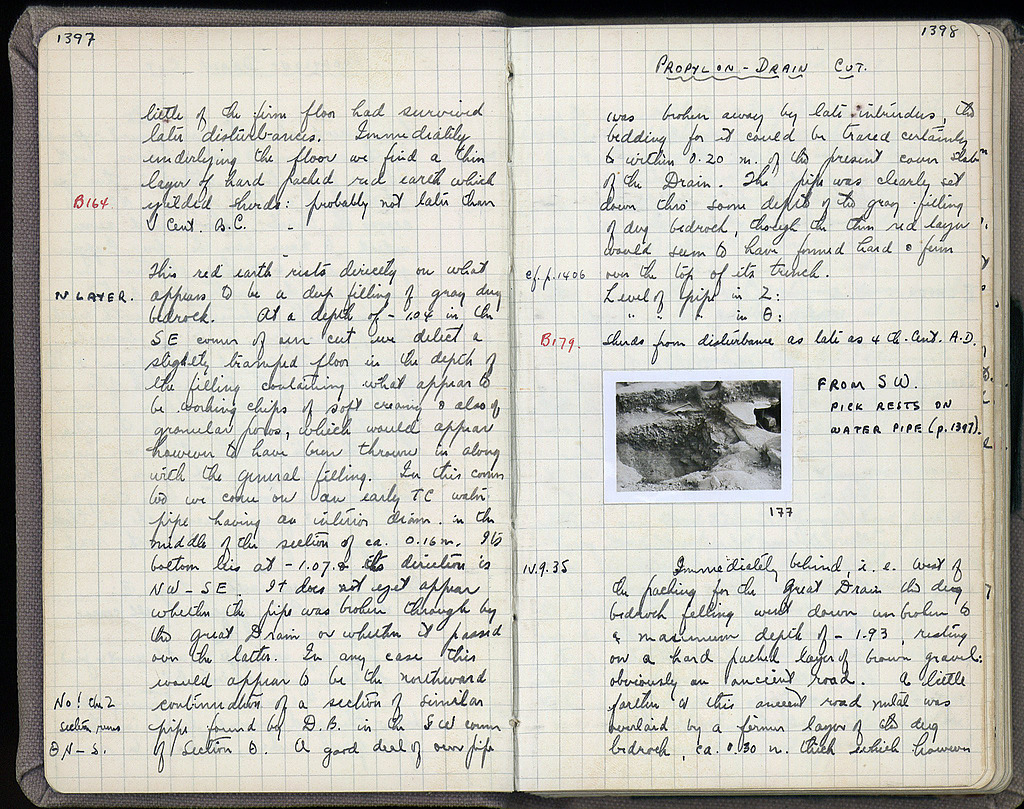 1397
little of the firm floor had survived
later disturbances. Immediately
underlying the floor we find a thin
layer of hard packed red earth which
B164 yielded sherds: probably not later than
I Cent. B.C.
This red earth rests directly on what
N LAYER. appears to be a deep filling of gray dug
bedrock. At a depth of -1.04 in the
SE corner of our cut we detect a
slightly tramped floor in the depth of
the filling containing what appear to
be working chips of soft creamy & also of
granular poros, which would appear
however to have been thrown in along
with the general filling. In this corner
too we come on an early TC water
pipe having an interior diam. in the
middle of the section of ca. 0.16 m. Its
bottom lies at -1.07. its direction is
NW-SE. It does not yet appear
whether the pipe was broken through by
the great Drain or whether it passed
over the latter. In any case this
would appear to be the northward
No! the Z continuation of a section of similar
section runs pipe found by D.B. in the SW corner
N-S. of Section Θ. A good deal of our pipe
1398
PROPYLON-DRAIN CUT.
was broken away by late intruders, the
bedding for it could be traced certainly
to within 0.20 m. of the present cover slabs
of the Drain. The pipe was clearly set
down thro some depth of the gray filling
of dug bedrock, though the thin red layer
would seem to have formed hard & firm
cf. p. 1406 over the top of its trench.
Level of pipe in Z:
" " " in Θ:
B179. Sherds from disturbance as late as 4th. Cent. A.D.
FROM SW.
PICK RESTS ON
WATER PIPE (p.1397).
177
IV.9.35 Immediately behind, i.e. west of
the packing for the Great Drain the dug
bedrock filling went down unbroken to
a maximum depth of -1.93, resting
on a hard packed layer of brown gravel:
obviously an ancient road. A little
farther W this ancient road metal was
overlaid by a firmer layer of the dug
bedrock, ca. 0.30 m. thick which however